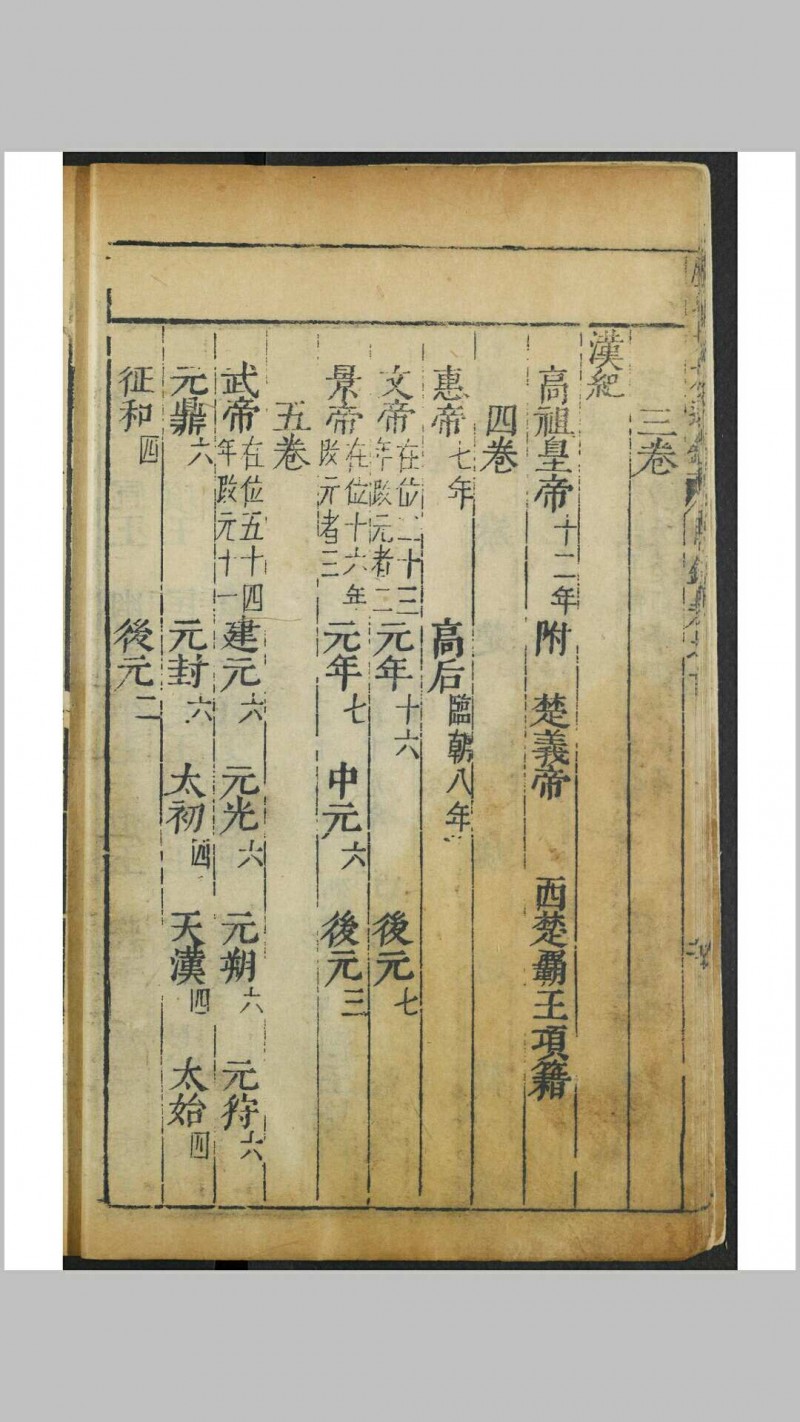 三卷
漢紀
高祖皇帝十二年 附 楚義帝 西楚霸王項籍
四卷
惠帝七年 高后臨朝八年
文帝在位二十三年改元者二 元年十六 後元七
景帝在位十六年改元者三 元年七 中元六 後元三
五卷
武帝在位五十四年改元十一 建元六 元光六 元朔六 元狩六
元鼎六 元封六 太初四 天漢四 太始四
征和四 後元二